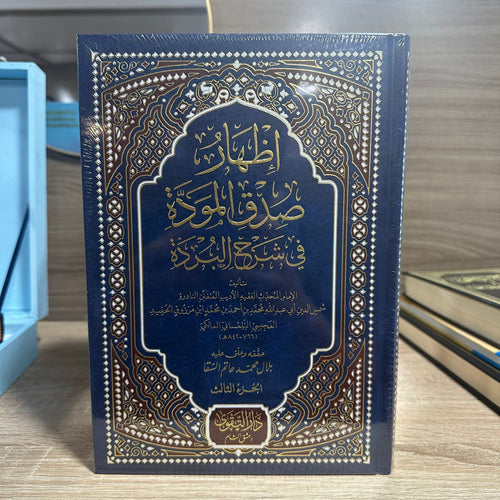 إظهار
صدق المودة
في شرح البردة
تأليف
الإمام المحدث الفقيه الأديب المتفنن النادرة
شمس الدين أبي عبد الله محمد بن أحمد بن محمد ابن مرزوق الحفيد
العجيسي التلمساني المالكي
(٧٦٦-٨٤٢هـ)
حققه وعلق عليه
بلال محمد حاتم السقا
الجزء الثالث
دار التقوى
دمشق شام